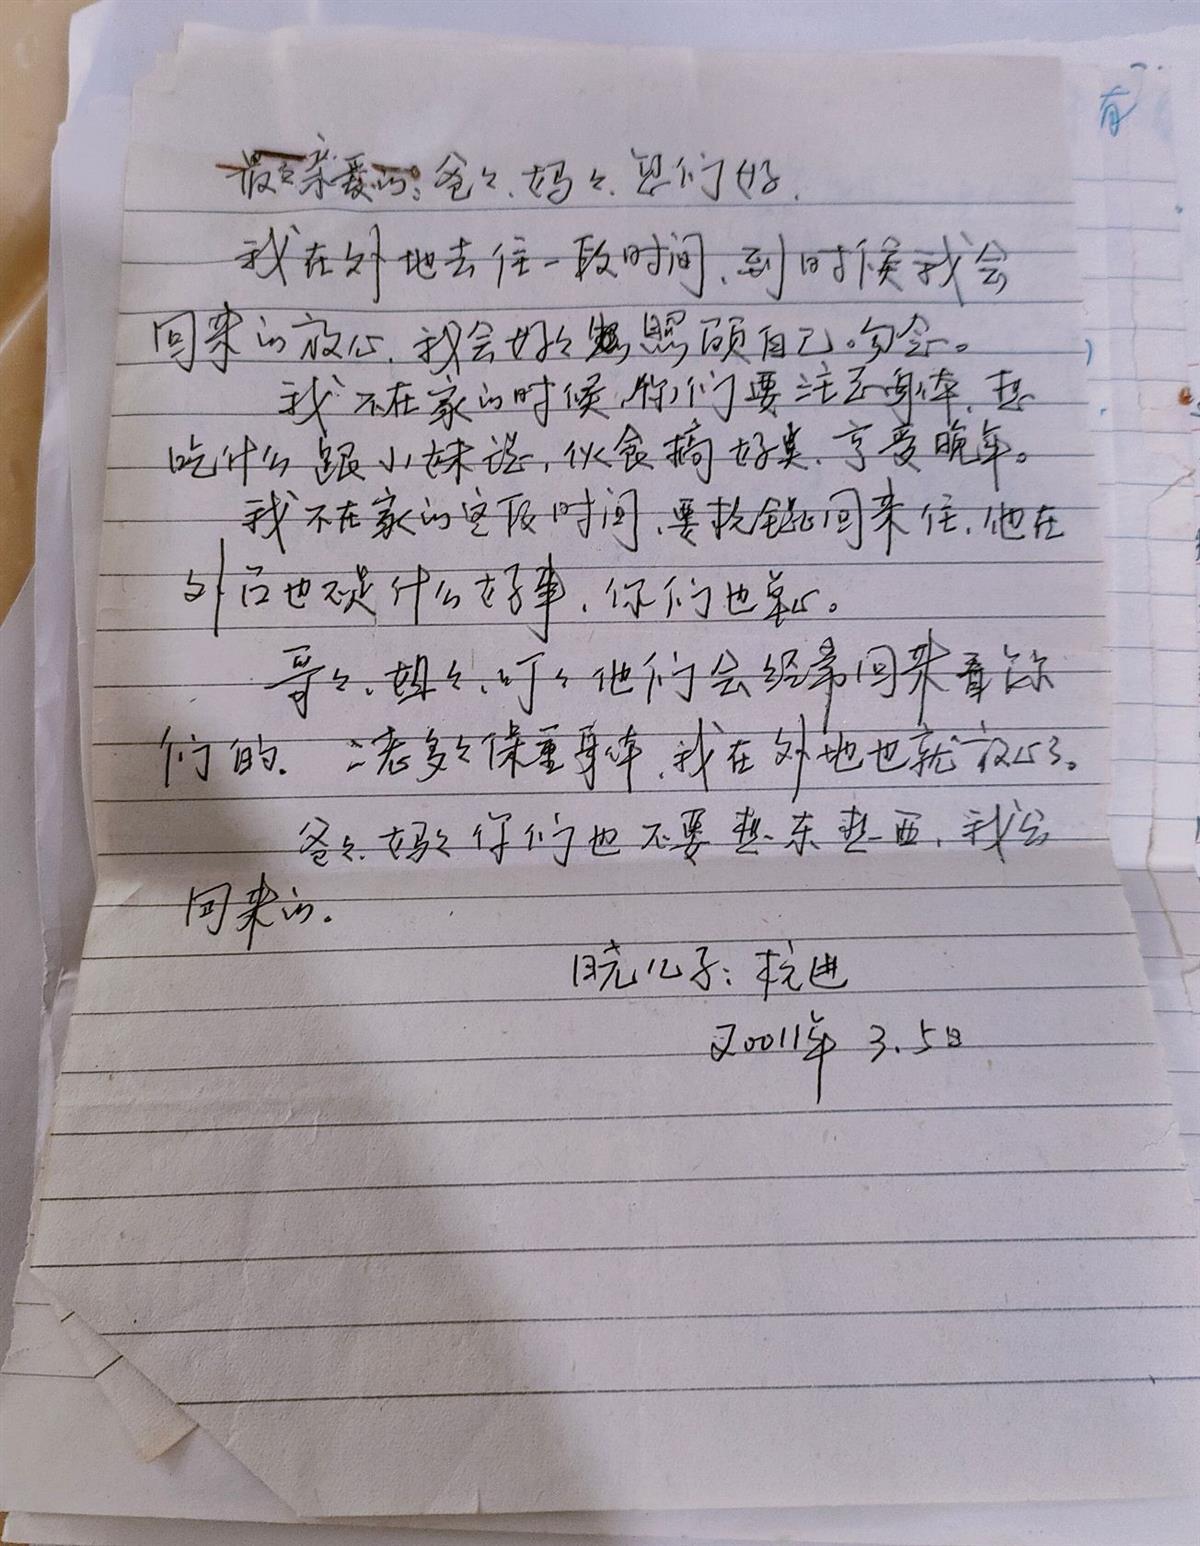 最亲爱的:爸々、妈々、您们好.
我在外地去住一段时间、到时候我会
回来的放心、我会好々照顾自己。勿念。
我不在家的时候,你们要注意身体,想
吃什么跟小妹说,伙食搞好点、享受晚年。
我不在家的这段时间、要抗 回来住,他在
外面也不是什么好事、你们也 心。
哥々、姐々、叮々他们会经常回来看你
们的. 二老多々保重身体,我在外地也就放心了。
爸々、妈々你们也不要想东想西,我会
回来的.
儿子:抗进
2011年 3.5日
有